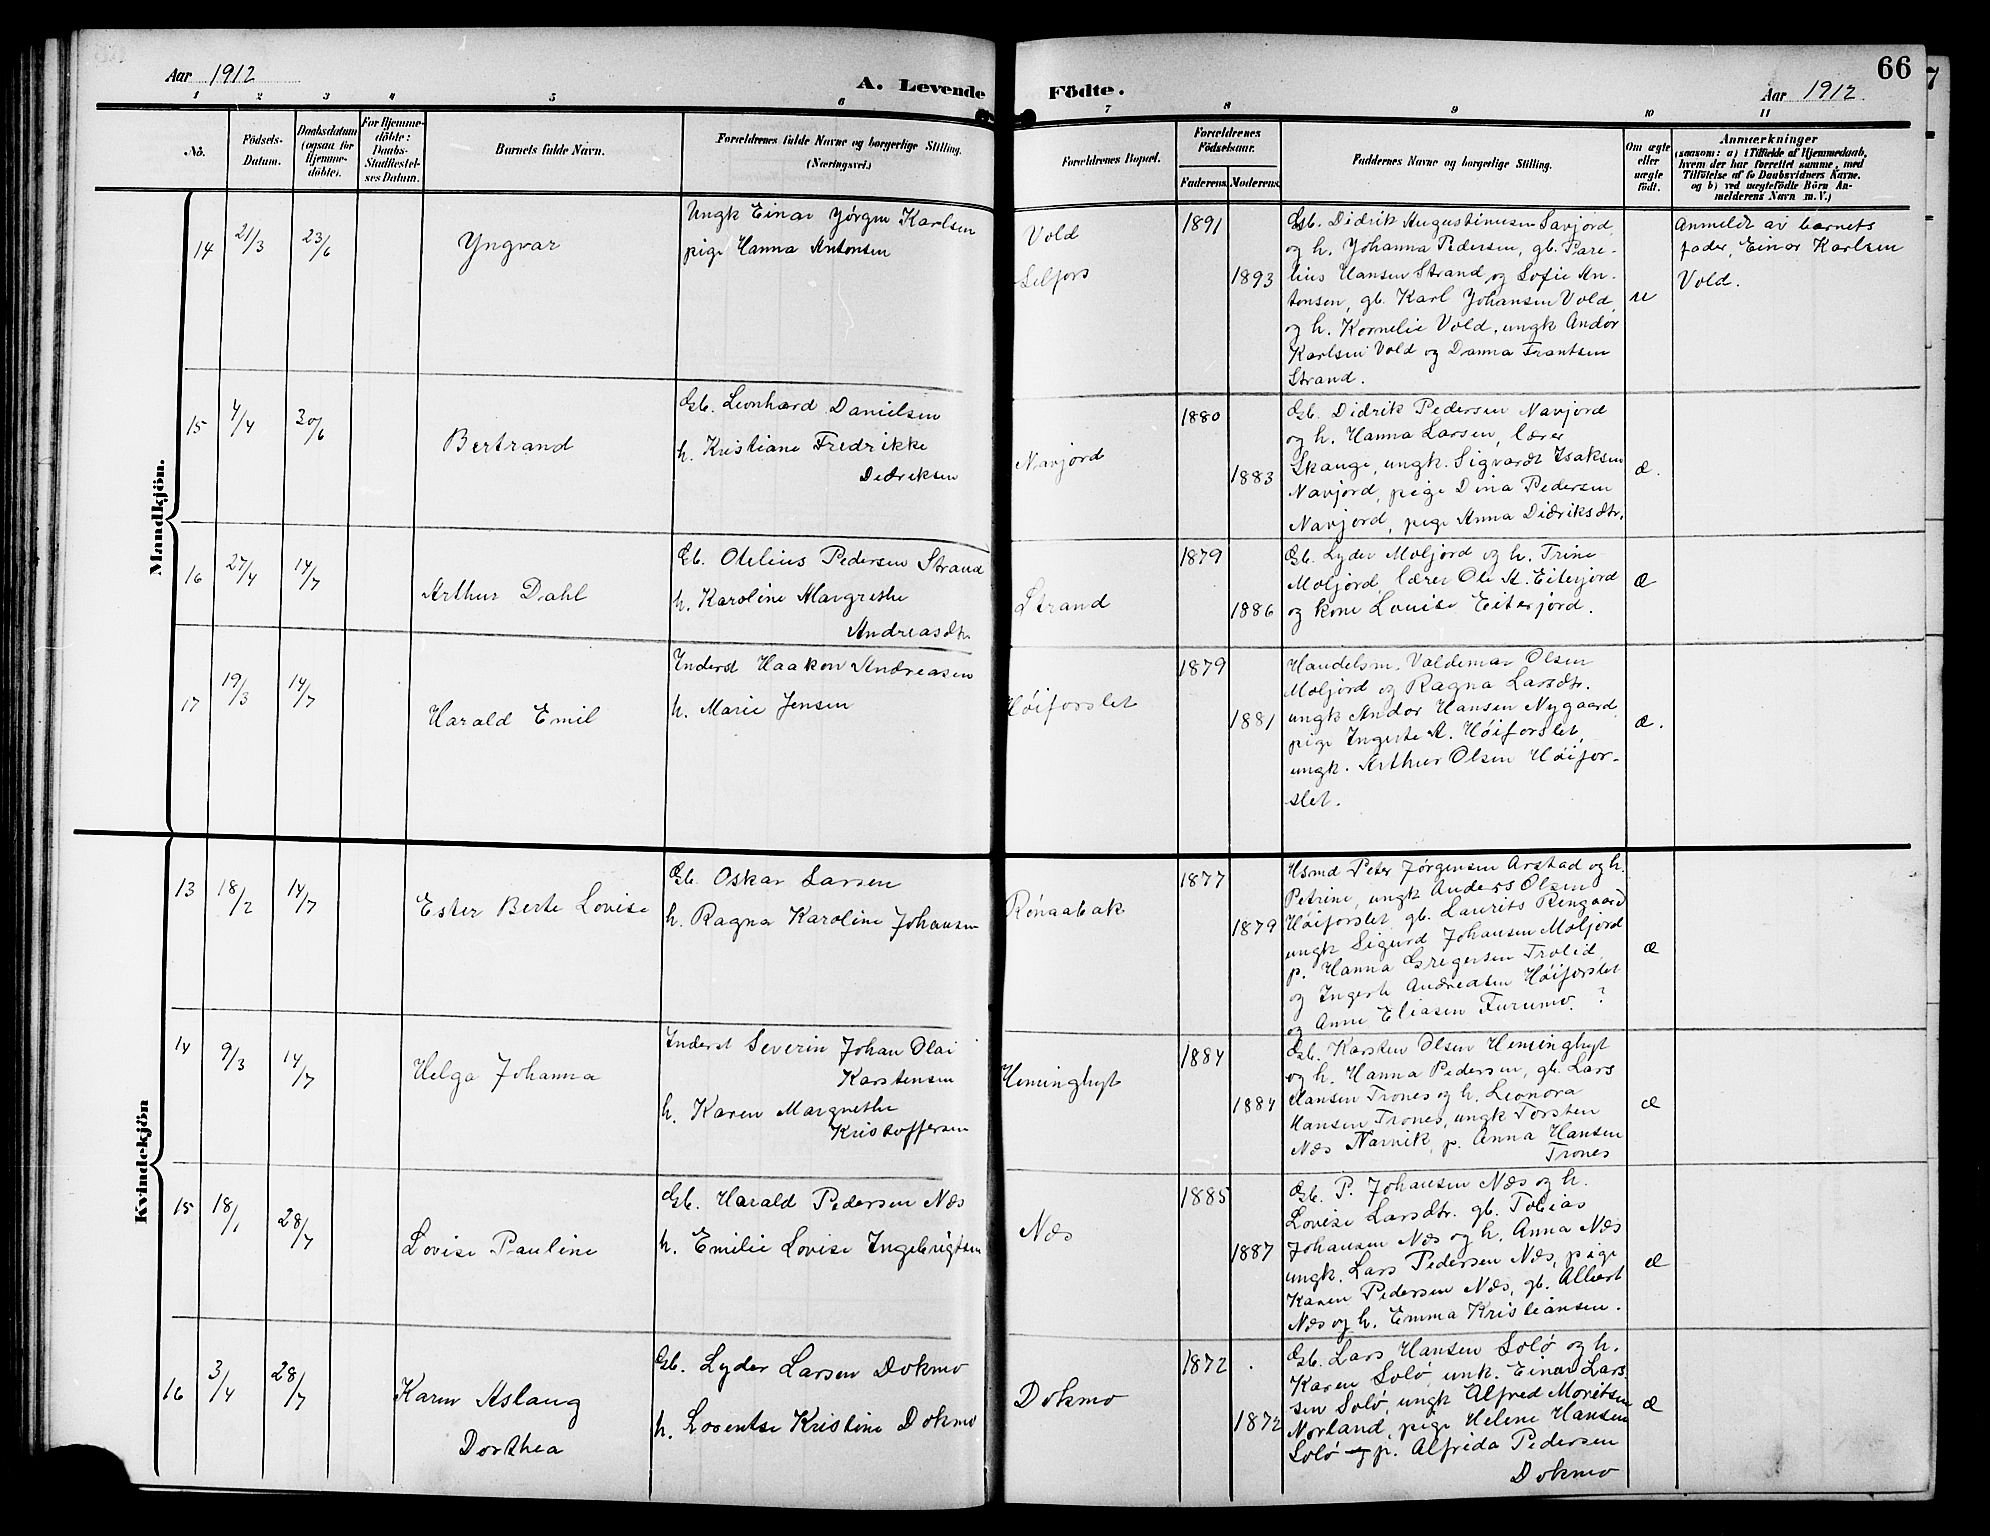 66
Aar 1912
A. Levende Födte.
Aar 1912
1 2 3 4 5 6 7 8 9 10 11
No.
Födsels-
Datum.
Daabsdatum
(ogsaa for
Hjemme-
döbte).
For Hjemme-
döbte:
Daabs-
Stadfæstel-
ses Datum.
Barnets fulde Navn.
Forældrenes fulde Navne og borgerlige Stilling.
(Næringsvei.)
Forældrenes Bopæl.
Forældrenes
Födselsaar.
Faderens.
Moderens.
Faddernes Navne og borgerlige Stilling.
Om ægte
eller
uægte
födt.
Anmærkninger
(saasom: a) i Tilfælde af Hjemmedaab,
hvem der har forrettet samme, med
Tilföielse af to Daabsvidners Navne.
og b) ved uægtefödte Börn An-
melderens Navn m. V.)
Mandkjön.
14
21/3
23/6
Yngvar
Ungk Einar Jørgen Karlsen
pige Hanna Antonsen
Vold
Selfors
1891
1893
Gb. Didrik Augustinusen Savjord,
og h. Johanna Pedersen, gb. Pare-
lius Hansen Strand og Sofie An-
tonsen, gb. Karl Johansen Vold
og h. Kornelie Vold, ungk Andor
Karlsen Vold og Danna Frantsen
Strand.
u
Anmeldt av barnets
fader, Einar Karlsen
Vold.
15
4/4
30/6
Bertrand
Gb. Leonhard Danielsen
h. Kristiane Fredrikke
Didriksen
Navjord
1880
1883
Gb. Didrik Pedersen Navjord
og h. Hanna Larsen, lærer
Skauge, ungk. Sigvardt Isaksen
Navjord, pige Dina Pedersen
Navjord, pige Anna Didriksdtr.
æ.
16
27/4
14/7
Arthur Dahl
Gb. Otelius Pedersen Strand
h. Karoline Margrethe
Andreasdtr.
Strand
1879
1886
Gb. Lyder Moljord og h. Trine
Moljord, lærer Ole A. Eiterjord
og kone Louise Eiterjord.
æ
17
19/3
14/7
Harald Emil
Inderst Haakon Andreasen
h. Marie Jensen
Høiforslet
1879
1881
Handelsm. Valdemar Olsen
Moljord og Ragna Larsdtr.
ungk Andor Hansen Nygaard,
pige Ingerte A. Høiforslet,
ungk. Arthur Olsen Høifor-
slet.
æ.
Kvindekjön
13
18/2
14/7
Ester Berte Lovise
Gb. Oskar Larsen
h. Ragna Karoline Johansen
Rønaabak
1877
1879
Hsmd Peter Jørgensen Arstad og h.
Petrine, ungk Anders Olsen
Høiforslet, gb. Laurits Rengaard
ungk Sigurd Johansen Moljord
p. Hanna Gregersen Trolid,
og Ingerte Andreasen Høiforslet
og Anne Eliasen Furumo. ?
æ
14
9/3
14/7
Helga Johanna
Inderst Severin Johan Olai
Karstensen
h. Karen Margrethe
Kristoffersen
Heminghyt
1884
1884
Gb. Karsten Olsen Heminghyt
og h. Hanna Pedersen, gb. Lars
Hansen Trones og h. Leonora
Hansen Trones, ungk Torsten
Næs Narvik, p. Anna Hansen
Trones
æ
15
18/1
28/7
Lovise Pauline
Gb. Harald Pedersen Næs
h. Emilie Lovise Ingebrigtsen
Næs
1885
1887
Gb. P. Johansen Næs og h.
Lovise Larsdtr. gb. Tobias
Johansen Næs og h. Anna Næs
ungk. Lars Pedersen Næs, pige
Karen Pedersen Næs, gb. Albert
Næs og h. Emma Kristiansen.
æ
16
3/4
28/7
Karen Aslaug
Dorthea
Gb. Lyder Larsen Dokmo
h. Loventse Kristine Dokmo
Dokmo
1872
1872
Gb. Lars Hansen Solø og h.
Karen Solø unk. Einar Lars-
sen Solø, ungk Alfred Moritsen
Norland, pige Helene Hansen
Solø og p. Alfrida Pedersen
Dokmo
æ